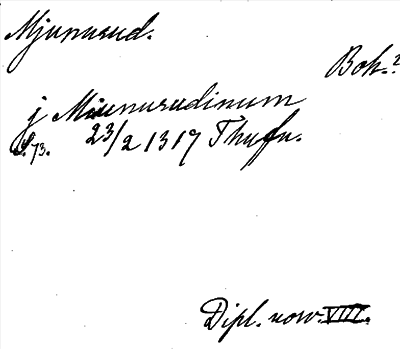 Mjunurud.
Boh.?
j Miunurudinum
S. 73. 23/2 1317 Thufn.
Dipl. norv. VIII.